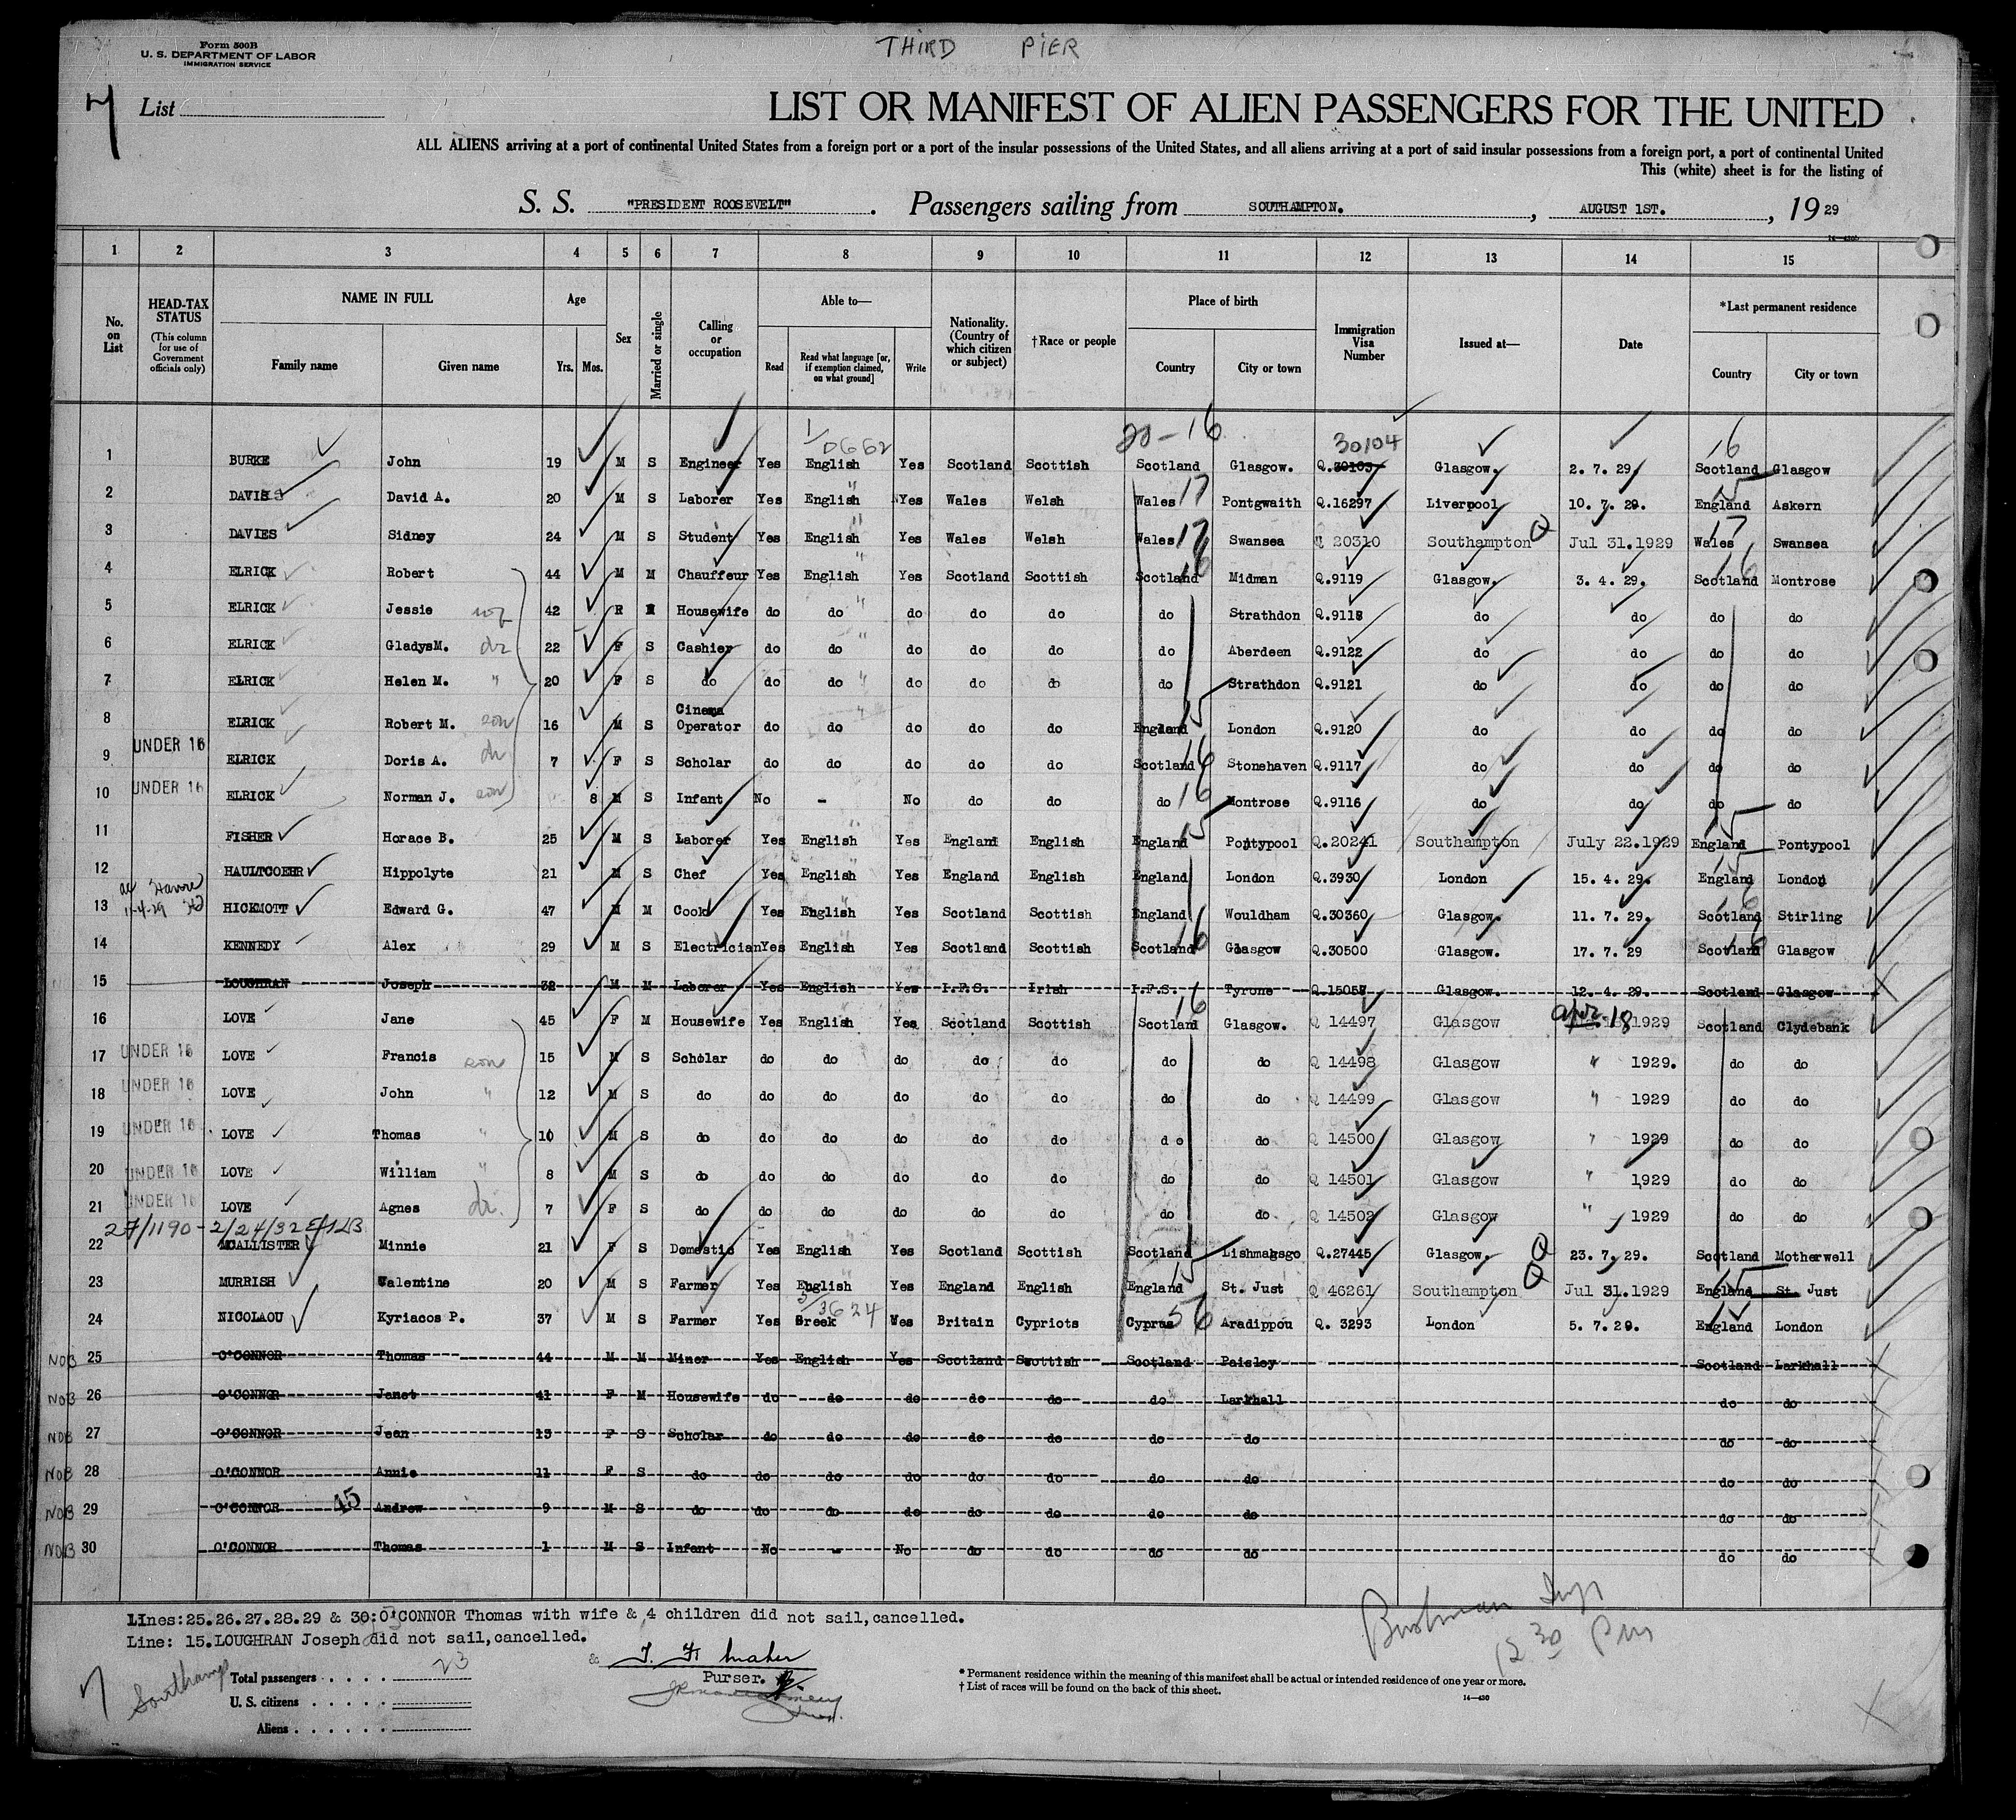 THIRD PIER
Form 500B
U. S. DEPARTMENT OF LABOR
IMMIGRATION SERVICE
7 List
LIST OR MANIFEST OF ALIEN PASSENGERS FOR THE UNITED
ALL ALIENS arriving at a port of continental United States from a foreign port or a port of the insular possessions of the United States, and all aliens arriving at a port of said insular possessions from a foreign port, a port of continental United
This (white) sheet is for the listing of
S. S. "PRESIDENT ROOSEVELT". Passengers sailing from SOUTHAMPTON. , AUGUST 1ST. , 19 29
1 2 3 4 5 6 7 8 9 10 11 12 13 14 15
No. on List
HEAD-TAX STATUS (This column for use of Government officials only)
NAME IN FULL Family name Given name
Age Yrs. Mos.
Sex
Married or single
Calling or occupation
Able to— Read Read what language [or, if exemption claimed, on what ground] Write
Nationality. (Country of which citizen or subject)
†Race or people
Place of birth Country City or town
Immigration Visa Number
Issued at—
Date
*Last permanent residence Country City or town
20-16 30104 16
1 BURKE John 19 M S Engineer Yes English Yes Scotland Scottish Scotland Glasgow. Q.30103 Glasgow. 2. 7. 29. Scotland Glasgow
2 DAVIES David A. 20 M S Laborer Yes English Yes Wales Welsh Wales 17 Pontgwaith Q.16297 Liverpool 10. 7. 29. England Askern
3 DAVIES Sidney 24 M S Student Yes English Yes Wales Welsh Wales 17 Swansea Q 20310 Southampton Jul 31.1929 Wales 17 Swansea
4 ELRICK Robert 44 M M Chauffeur Yes English Yes Scotland Scottish Scotland 16 Midman Q.9119 Glasgow. 3. 4. 29. Scotland 16 Montrose
5 ELRICK Jessie 42 F M Housewife do do do do do do Strathdon Q.9118 do do do do
6 ELRICK GladysM. 22 F S Cashier do do do do do do Aberdeen Q.9122 do do do do
7 ELRICK Helen M. " 20 F S do do do do do do do Strathdon Q.9121 do do do do
8 ELRICK Robert M. son 16 M S Cinema Operator do do do do do England 15 London Q.9120 do do do do
9 UNDER 16 ELRICK Doris A. 7 F S Scholar do do do do do Scotland 16 Stonehaven Q.9117 do do do do
10 UNDER 16 ELRICK Norman J. son 8 M S Infant No - No do do do 16 Montrose Q.9116 do do do do
11 FISHER Horace B. 25 M S Laborer Yes English Yes England English England 15 Pontypool Q.20241 Southampton July 22.1929 England 15 Pontypool
12 HAULTCOEHR Hippolyte 21 M S Chef Yes English Yes England English England London Q.3930 London 15. 4. 29. England 15 London
13 HICKMOTT Edward G. 47 M M Cook Yes English Yes Scotland Scottish England Wouldham Q.30360 Glasgow. 11. 7. 29. Scotland 16 Stirling
14 KENNEDY Alex 29 M S Electrician Yes English Yes Scotland Scottish Scotland 16 Glasgow Q.30500 Glasgow. 17. 7. 29 Scotland 16 Glasgow
15 LOUGHRAN Joseph 32 M M Laborer Yes English Yes I.F.S. Irish I.F.S. Tyrone Q.15057 Glasgow. 12. 4. 29. Scotland Glasgow
16 LOVE Jane 45 F M Housewife Yes English Yes Scotland Scottish Scotland 16 Glasgow. Q 14497 Glasgow Apr. 18 1929 Scotland Clydebank
17 UNDER 16 LOVE Francis son 15 M S Scholar do do do do do do do Q 14498 Glasgow " 1929. do do
18 UNDER 16 LOVE John " 12 M S do do do do do do do do Q 14499 Glasgow " 1929 do do
19 UNDER 16 LOVE Thomas " 10 M S do do do do do do do do Q 14500 Glasgow " 1929 do do
20 UNDER 16 LOVE William " 8 M S do do do do do do do do Q 14501 Glasgow " 1929 do do
21 UNDER 16 LOVE Agnes 7 F S do do do do do do do do Q 14502 Glasgow " 1929 do do
22 MCALLISTER Minnie 21 F S Domestic Yes English Yes Scotland Scottish Scotland Lishmahsgo Q.27445 Glasgow. 23. 7. 29. Scotland Motherwell
23 MURRISH Valentine 20 M S Farmer Yes English Yes England English England 15 St. Just Q 46261 Southampton Jul 31.1929 England 15 St. Just
24 NICOLAOU Kyriacos P. 37 M S Farmer Yes Greek Yes Britain Cypriots Cyprus 56 Aradippou Q. 3293 London 5. 7. 29. England 15 London
NOB 25 O'CONNOR Thomas 44 M M Miner Yes English Yes Scotland Scottish Scotland Paisley Scotland Larkhall
NOB 26 O'CONNOR Janet 41 F M Housewife do do do do do do Larkhall do do
NOB 27 O'CONNOR Jean 13 F S Scholar do do do do do do do do do
NOB 28 O'CONNOR Annie 11 F S do do do do do do do do do do
NOB 29 O'CONNOR 15 Andrew 9 M S do do do do do do do do do do
NOB 30 O'CONNOR Thomas 1 M S Infant No - No do do do do do do
LInes:25.26.27.28.29 & 30:O'CONNOR Thomas with wife & 4 children did not sail,cancelled.
Line: 15.LOUGHRAN Joseph did not sail,cancelled.
Total passengers 23
U. S. citizens
Aliens
Purser.
12 30 Pm
* Permanent residence within the meaning of this manifest shall be actual or intended residence of one year or more.
† List of races will be found on the back of this sheet.
14—430